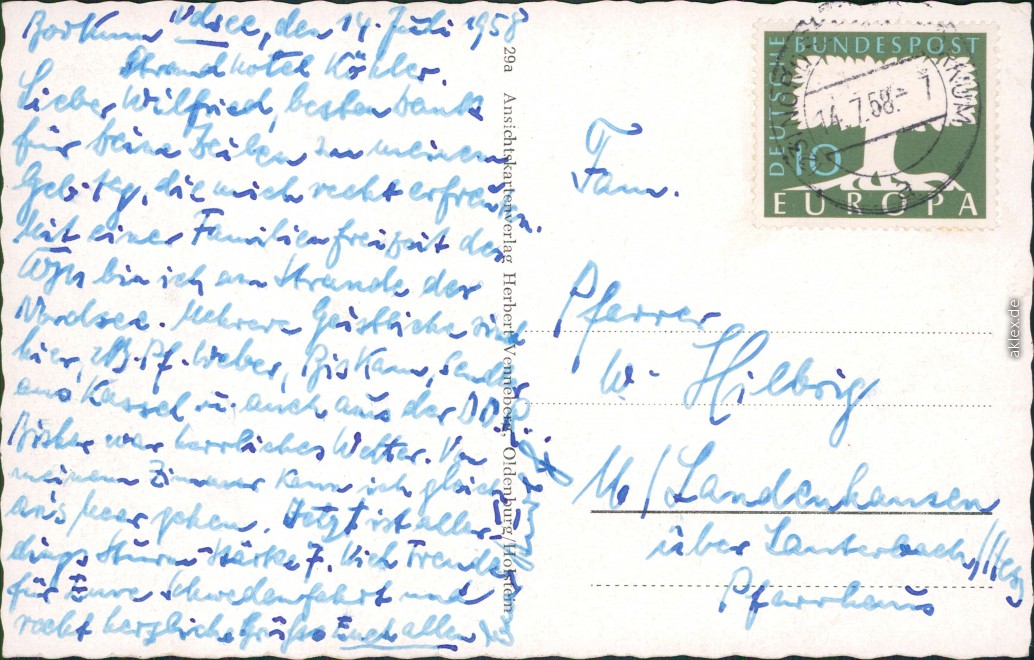 Borkum Ndsee, den 14. Juli 1958
Strandhotel Köhler.
Lieber Wilfried, besten Dank
für Deine Zeilen zu meinem
Gebtag, die mich recht erfreuten.
Mit einer Familienfreizeit des
bin ich am Strande der
Nordsee. Mehrere Geistliche sind
hier, z.B. Pf. Weber,
aus Kassel u. auch aus der DDR
Bisher war herrliches Wetter. Von
meinem Zimmer kann ich gleich
ans Meer gehen. Jetzt ist aller-
dings Sturm Stärke 7. Viel Freude
für Eure Schwedenfahrt und
recht herzliche Grüße Euch allen
29a Ansichtskartenverlag Herbert Venneberg, Oldenburg/Holstein
DEUTSCHE BUNDESPOST
10
EUROPA
14.7.58.- 7
Fam.
Pfarrer
W. Hilbrig
Landenhausen
über Lauterbach/Hess
Pfarrhaus
aklex.de